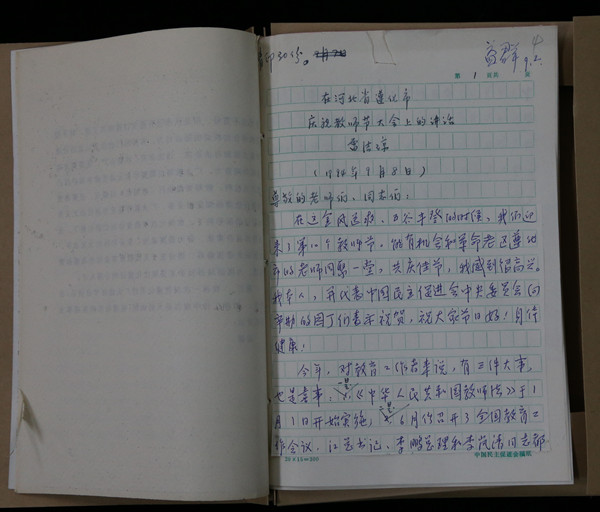 印30份。
益群
9.2.
4
第 1 页共 页
在河北省遵化市
庆祝教师节大会上的讲话
雷洁琼
(1994年9月8日)
尊敬的老师们、同志们:
在这金风送爽、五谷丰登的时候,我们迎
来了第10个教师节。能有机会和革命老区遵化
市的老师同聚一堂,共庆佳节,我感到很高兴。
我本人,并代表中国民主促进会中央委员会向
辛勤的园丁们表示祝贺,祝大家节日好!身体
健康!
今年,对教育工作者来说,有三件大事,
也是喜事:一是《中华人民共和国教师法》于1
月1日开始实施,二是6月份召开了全国教育工
作会议,江总书记、李鹏总理和李岚清同志都
20×15=300
中国民主促进会稿纸